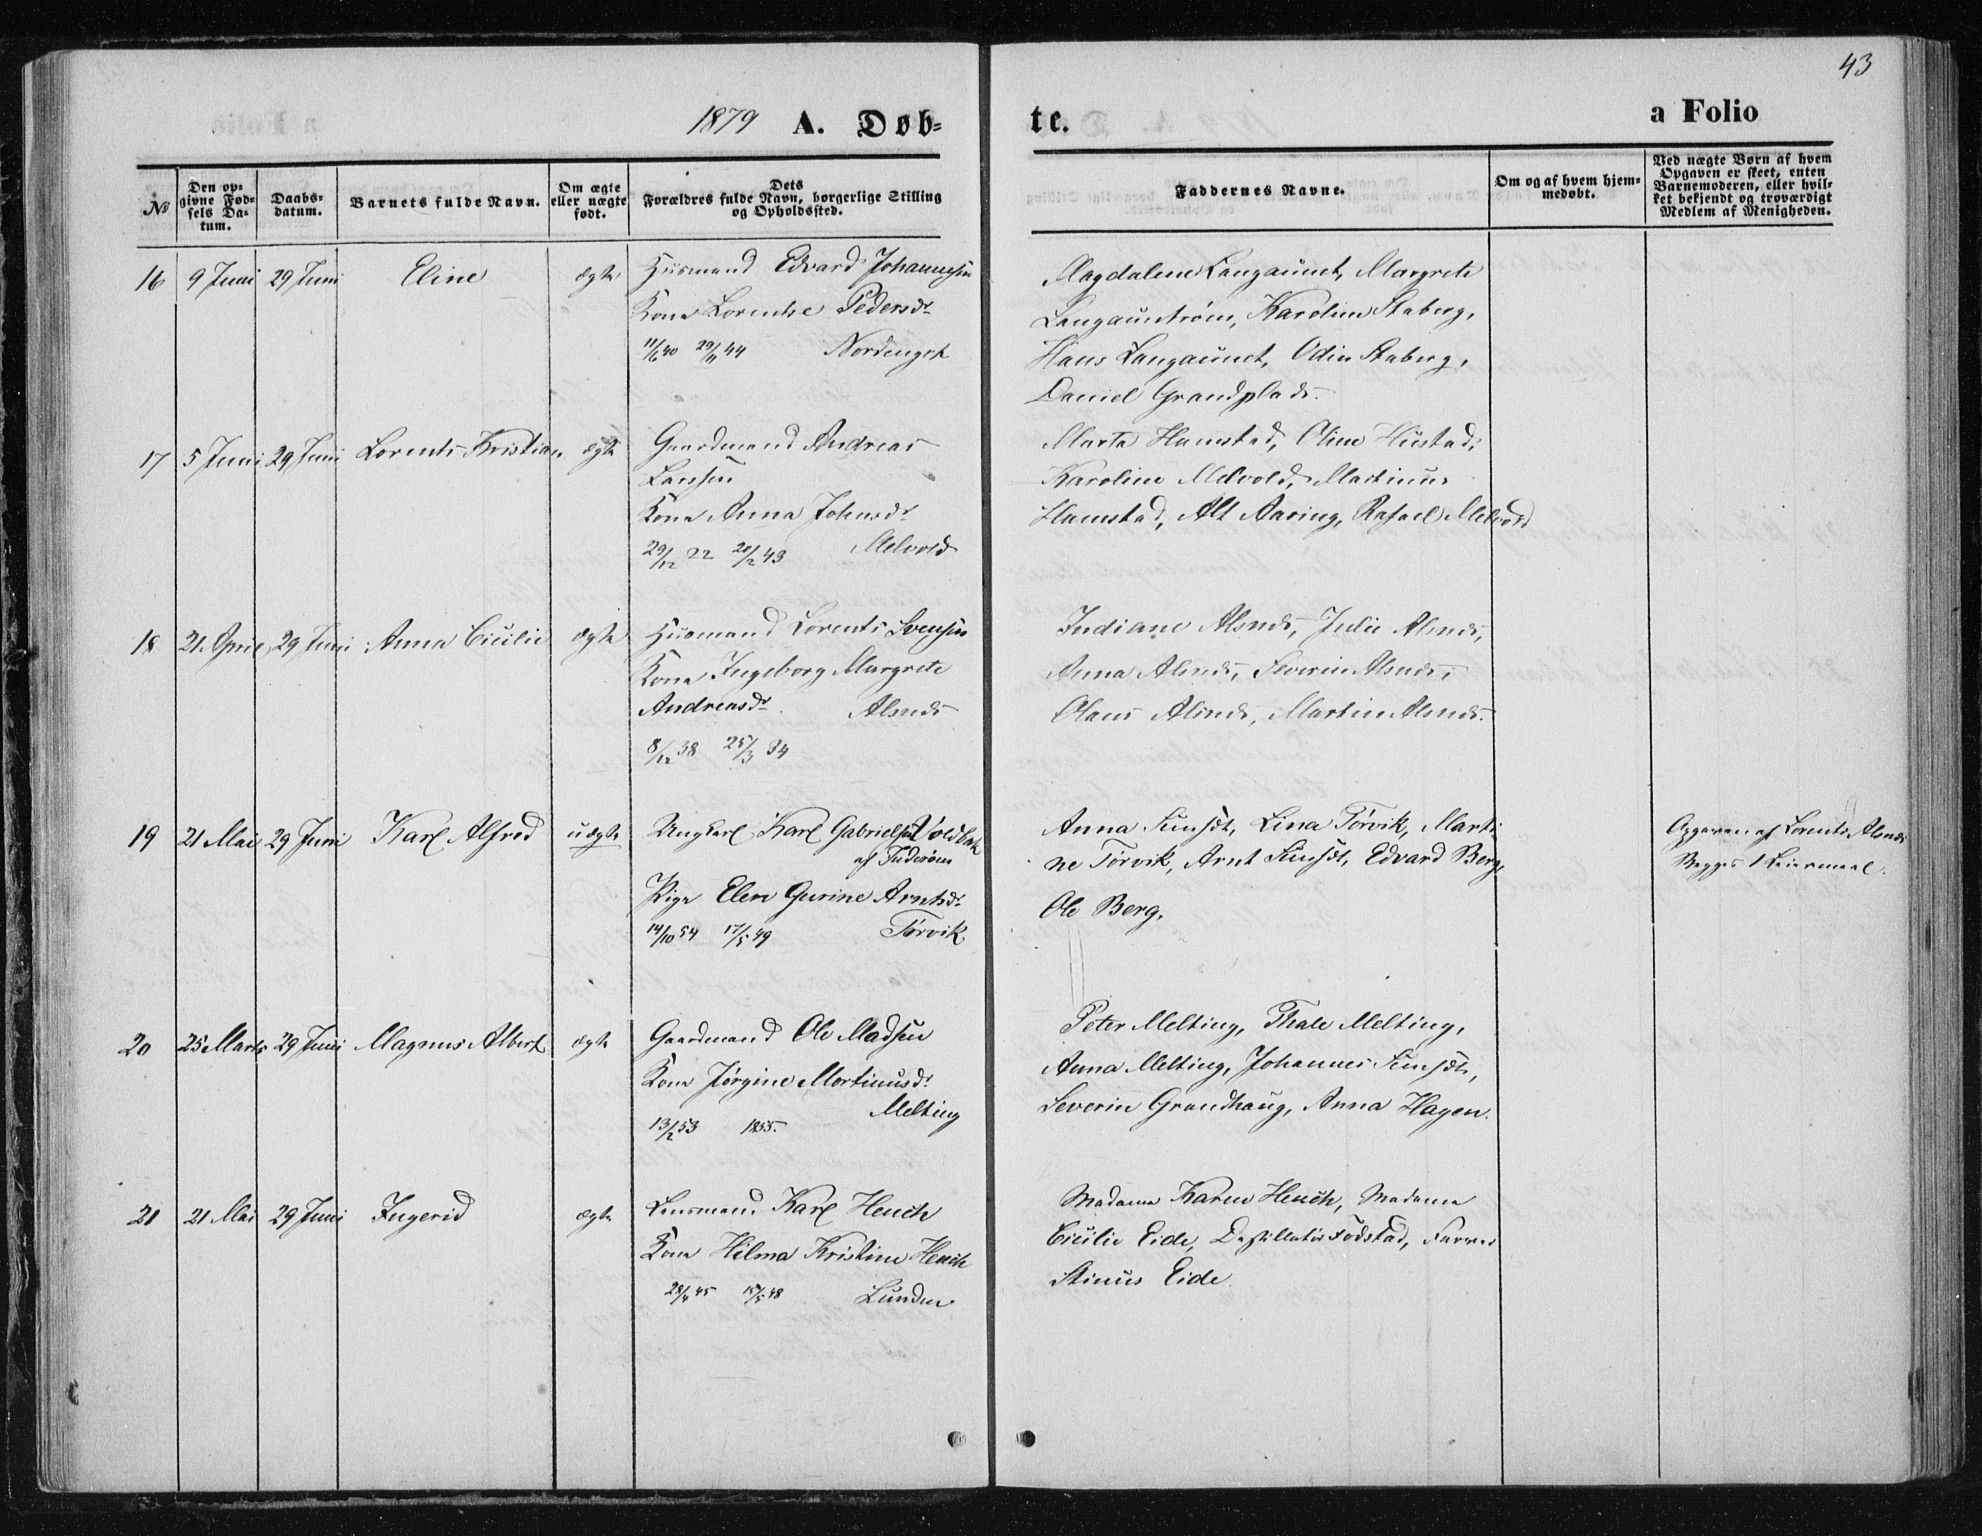 43
1879 A. Døb-
te.
a Folio
No
Den op-
givne Fød-
sels Da-
tum.
Daabs-
datum.
Barnets fulde Navn.
Om ægte
eller uægte
født.
Dets
Forældres fulde Navn, borgerlige Stilling
og Opholdssted.
Faddernes Navne.
Om og af hvem hjem-
medøbt.
Ved uægte Børn af hvem
Opgaven er skeet, enten
Barnemoderen, eller hvil-
ket bekjendt og troværdigt
Medlem af Menigheden.
16 9 Juni 29 Juni Eline ægte Husmand Edvard Johannesen
Kone Lorentse Pedersdr
11/6 40 29/11 44 Nordengek
Magdalene Langaunet, Margrete
Langauntrøen, Karoline Staberg,
Hans Langaunet, Odin Staberg,
Daniel Grandplads.
17 5 Juni 29 Juni Lorents Kristian ægte Gaardmand Andreas
Larssen
Kone Anna Johnsdr
29/12 22 20/2 43 Melvold
Marta Hamstad, Oline Hustad,
Karoline Melvold, Martinus
Hamstad, Alt Aaring, Rafael Melvold
18 21 April 29 Juni Anna Cicilie ægte Husmand Lorents Svensen
Kone Ingeborg Margrete
Andreasdr Alsnes
8/12 38 25/3 34
Indiane Alsnes, Julie Alsnes,
Anna Alsnes, Severin Alsnes,
Olaus Alsnes, Martin Alsnes.
19 21 Mai 29 Juni Karl Alfred uægte Ungkarl Karl Gabrielsen Voldbak
af Inderøen
Pige Elen Gurine Arntsdr
14/10 54 17/5 49 Tørvik
Anna Sunset, Lina Tørvik, Marti-
ne Tørvik, Arnt Sunset, Edvard Berg,
Ole Berg.
Opgaven af Lorents Alsnes
Begges 1 Leiermaal.
20 25 Marts 29 Juni Magnus Albert ægte Gaardmand Ole Madsen
Kone Jørgine Mortinusdr
Melting
13/2 53 1855.
Peter Melting, Thale Melting,
Anna Melting, Johannes Sunset,
Severin Grandhaug, Anna Hagen.
21 21 Mai 29 Juni Ingerid ægte Lensmand Karl Hench
Kone Hilma Kristine Hench
28/4 45 15/5 48 Lunden
Madame Karen Hench, Madame
Cicilie Eide, Destillatør Fodstad,
Stinus Eide.